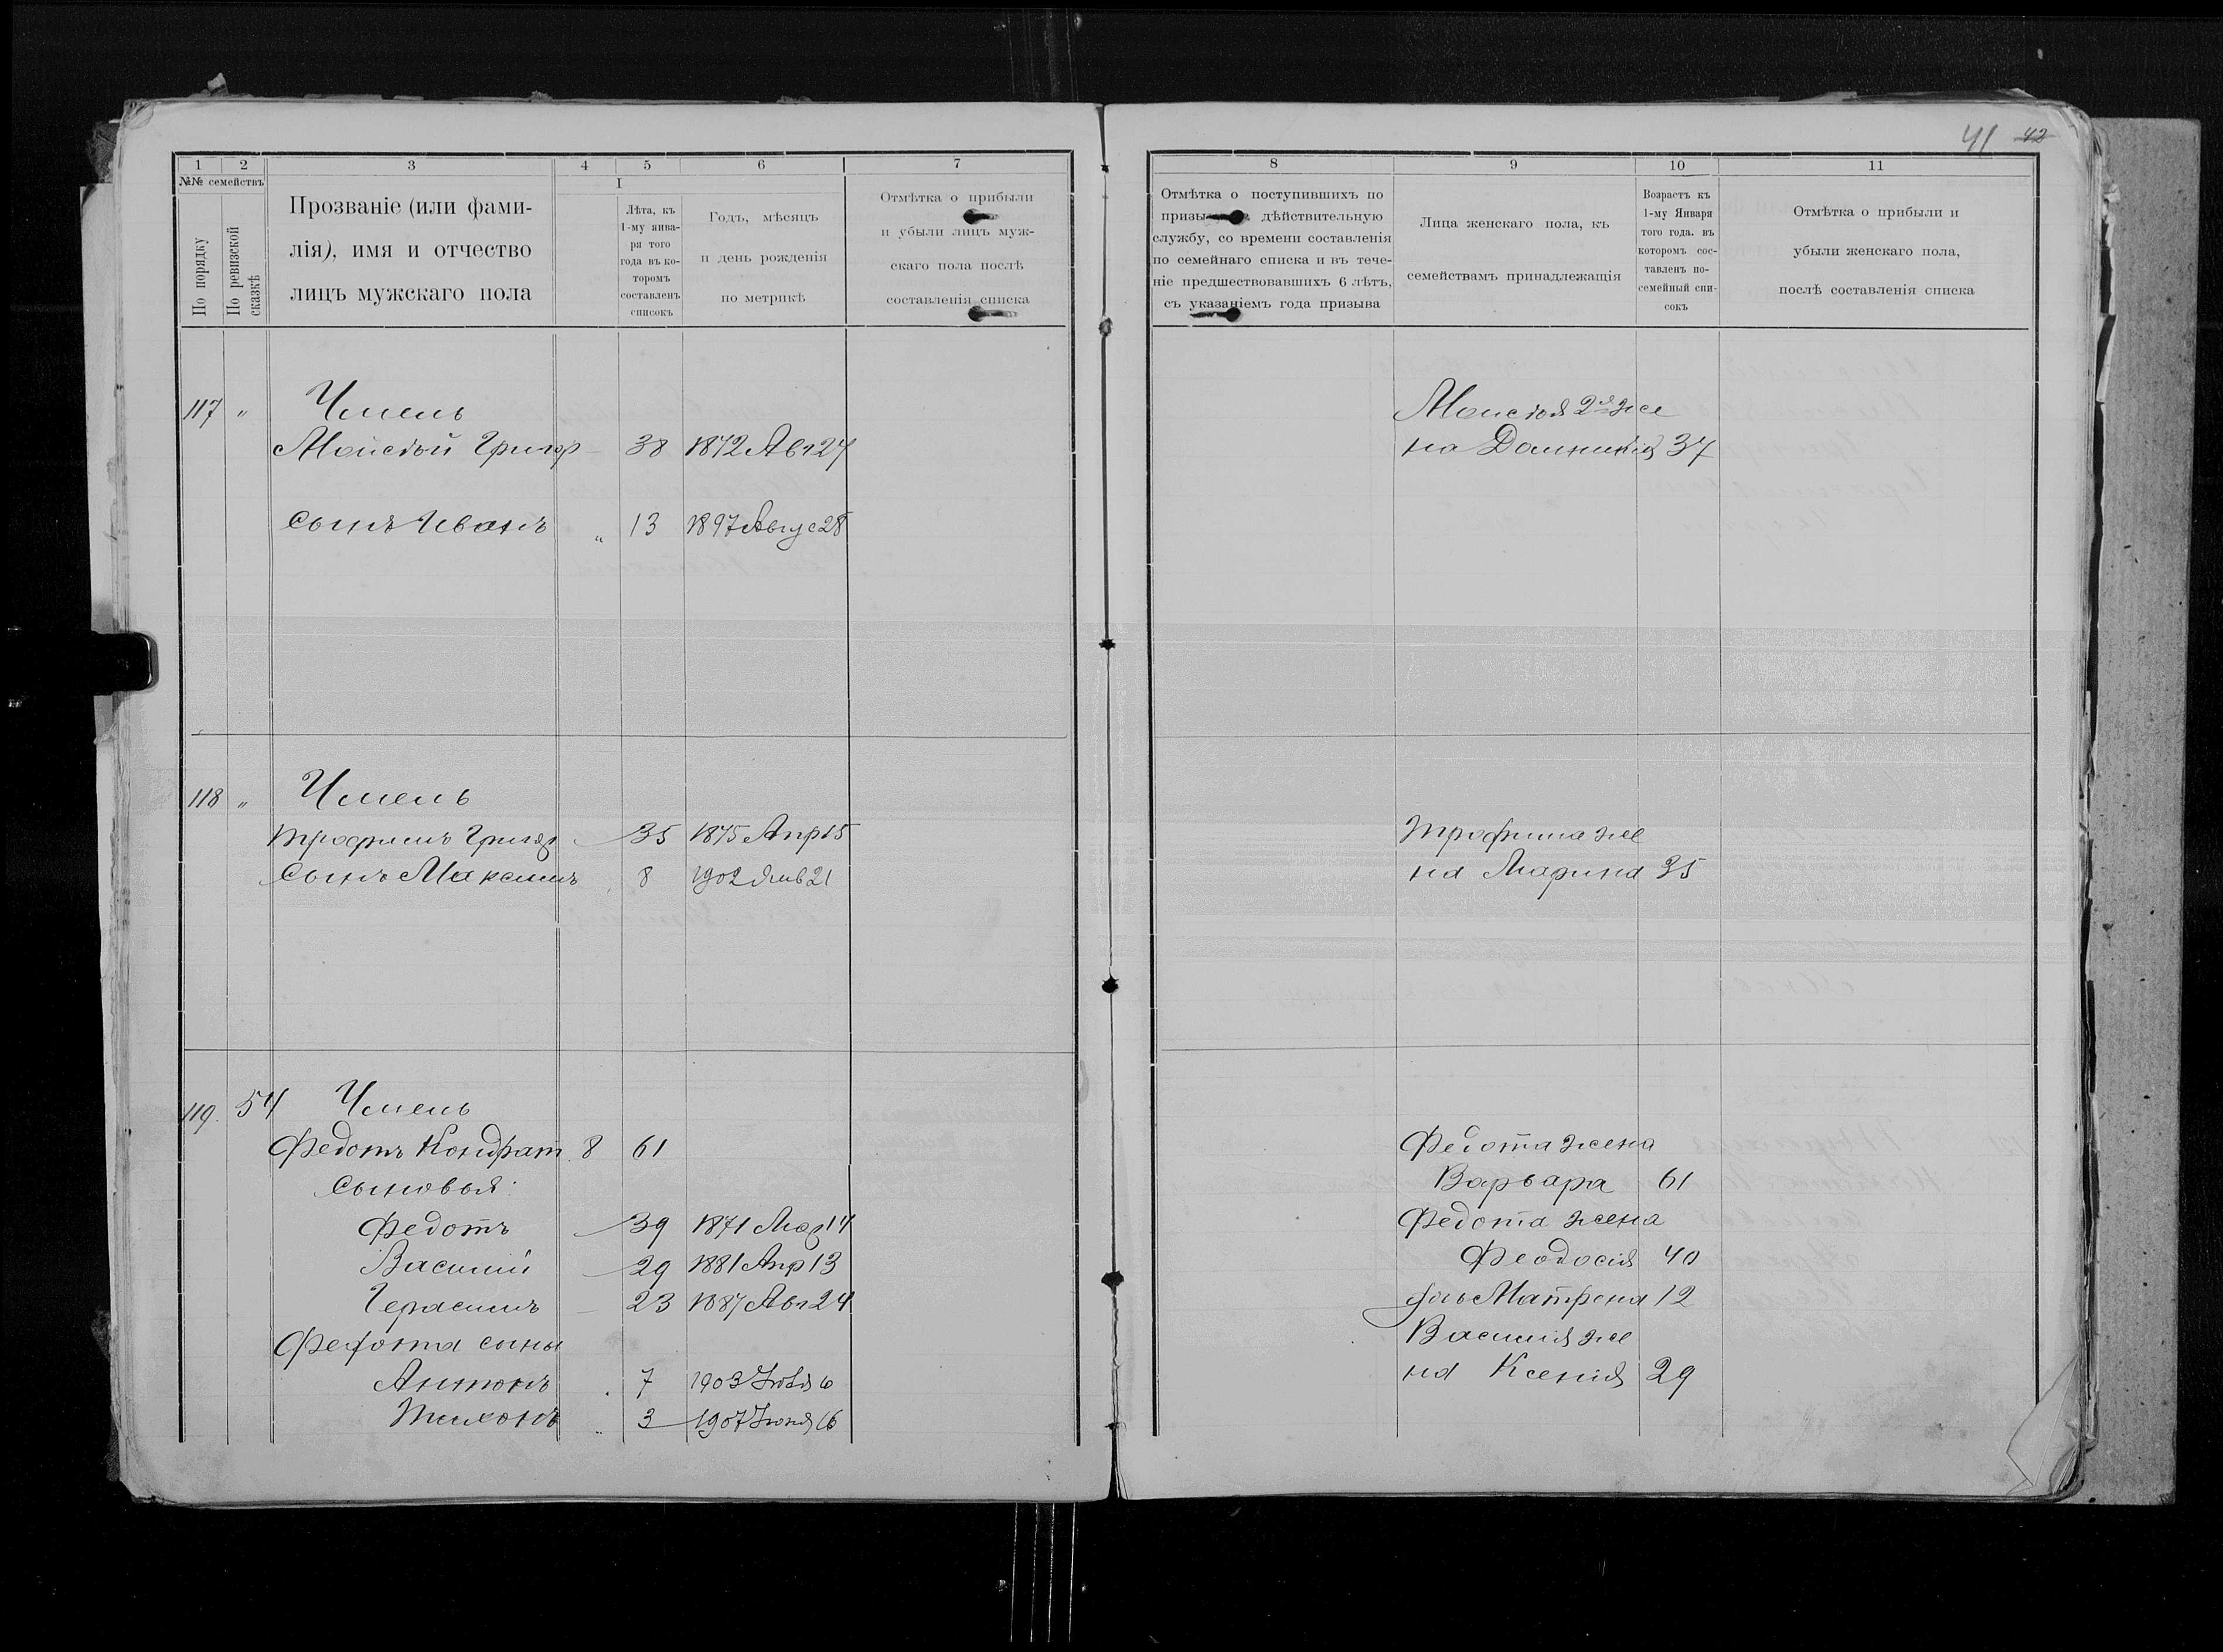 41 42
1 2 3 4 5 6 7
№№ семействъ
По порядку
По ревизской сказкѣ
Прозваніе (или фами-
лія), имя и отчество
лицъ мужскаго пола
I
Лѣта, къ
1-му янва-
ря того
года въ ко-
торомъ
составленъ
списокъ
Годъ, мѣсяцъ
и день рожденія
по метрикѣ
Отмѣтка о прибыли
и убыли лицъ муж-
скаго пола послѣ
составленія списка
117 " Чмень
Моисѣй Григор — 38 1872 Авг 27
Сынъ Иванъ " 13 1897 Авгус 28
118 " Чмень
Трофимъ Григор 35 1875 Апр 15
Сынъ Максимъ 8 1902 Янв 21
119. 54 Чмень
Федотъ Кондрат. 8 61
Сыновья:
Федотъ — 39 1871 Мар 14
Василий — 29 1881 Апр 13
Герасимъ — 23 1887 Авг 24
Федота сыны
Антонъ 7 1903 Июля 6
Тихонъ " 3 1907 Июня 16
8 9 10 11
Отмѣтка о поступившихъ по
призы дѣйствительную
службу, со времени составленія
по семейнаго списка и въ тече-
ніе предшествовавшихъ 6 лѣтъ,
съ указаніемъ года призыва
Лица женскаго пола, къ
семействамъ принадлежащія
Возрастъ къ
1-му Января
того года. въ
которомъ сос-
тавленъ по-
семейный спи-
сокъ
Отмѣтка о прибыли и
убыли женскаго пола,
послѣ составленія списка
Моисѣя 2я же
на Домникія 37
Трофима же
на Марина 35
Федота жена
Варвара 61
Федота жена
Феодосія 40
дочь Матрена 12
Василія же
на Ксенія 29